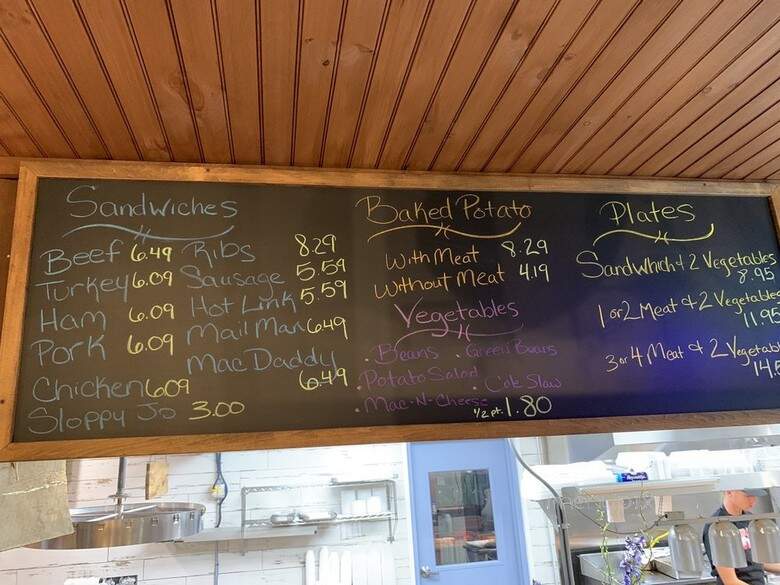 Sandwiches
Beef 6.49
Turkey 6.09
Ham 6.09
Pork 6.09
Chicken 6.09
Sloppy Jo 3.00
Ribs 8.29
Sausage 5.59
Hot Link 5.59
Mail Man 6.49
Mac Daddy 6.49
Baked Potato
With Meat 8.29
Without Meat 4.19
Vegetables
. Beans . Green Beans
. Potato Salad . Cole Slaw
. Mac-N-Cheese
1/2 pt. 1.80
Plates
Sandwhich + 2 Vegetables
8.95
1 or 2 Meat + 2 Vegetables
11.95
3 or 4 Meat + 2 Vegetabl
14.